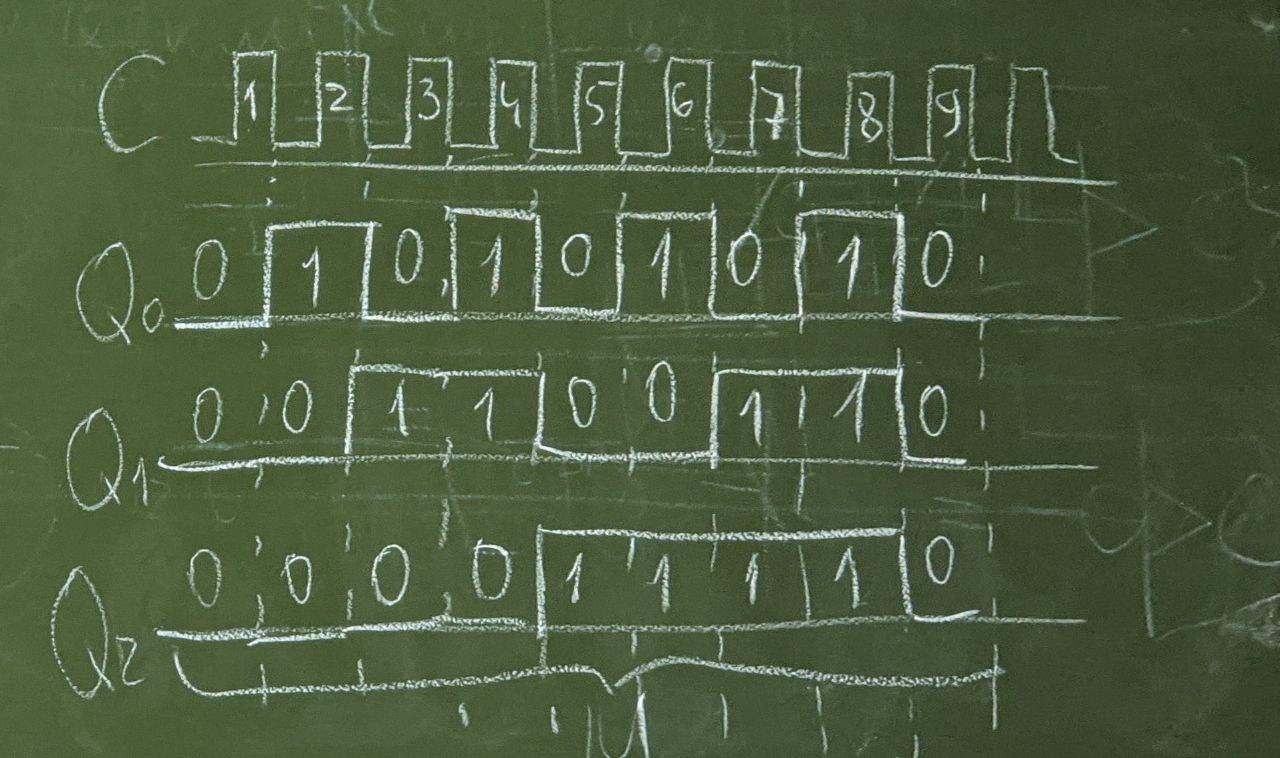 C 1 2 3 4 5 6 7 8 9
Q0 0 1 0 1 0 1 0 1 0
Q1 0 0 1 1 0 0 1 1 0
Q2 0 0 0 0 1 1 1 1 0